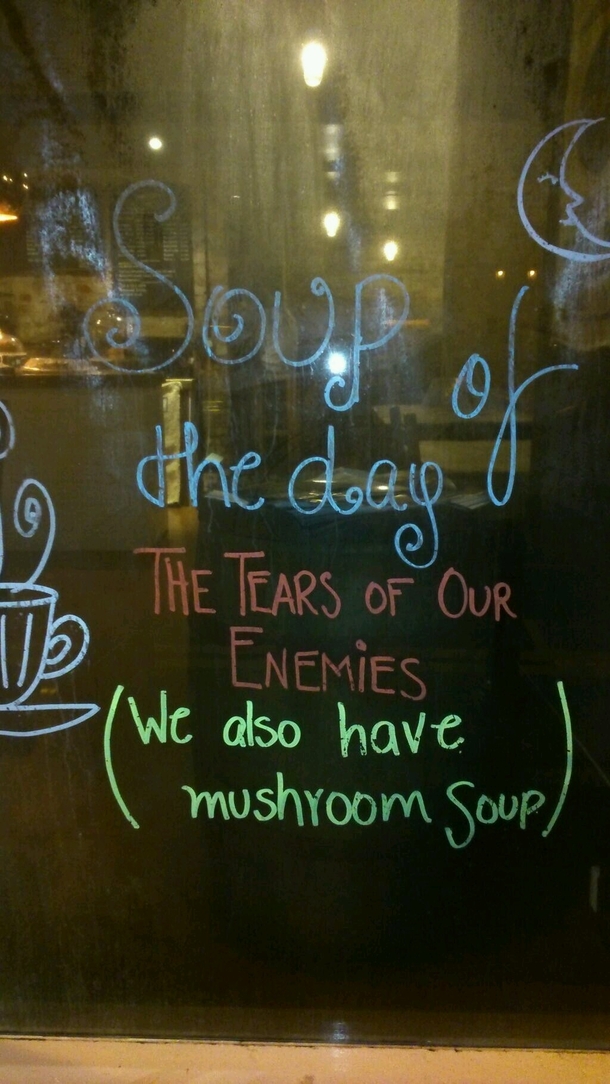 Soup of
the day
THE TEARS OF OUR
ENEMIES
(We also have
mushroom Soup)